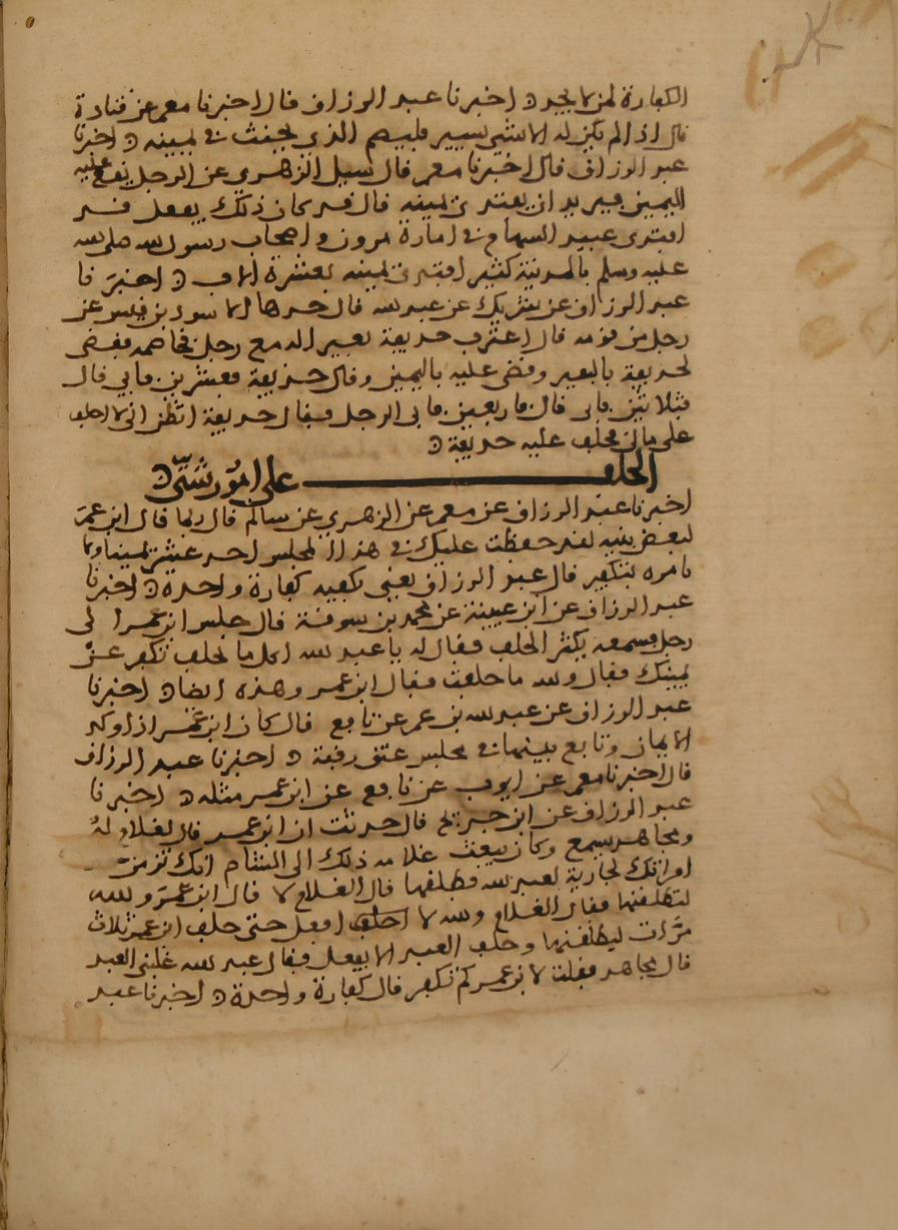 الكفارة لمن لا يجد ه اخبرنا عبد الرزاق قال اخبرنا معمر عن قتادة
قال اذا لم يكن له الا شي يسير فليصم الذي يحنث في يمينه ه اخبرنا
عبد الرزاق قال اخبرنا معمر قال سيل الزهري عن الرجل يقع عليه
اليمين فيريد ان يفتدي يمينه قال قد كان ذلك يفعل قد
افتدى عبيد السهام في امارة مرون واصحاب رسول الله صلى الله
عليه وسلم بالمدينة كثير افتدى يمينه بعشرة الاف ه اخبرنا
عبد الرزاق عن شريك عن عبد الله قال حدثنا الاسود بن قيس عن
رجل من قومه قال اعترف حذيفة بعير اله مع رجل فخاصمه فقضى
لحذيفة بالبعير وقضى عليه باليمين وقال حذيفة فعشرين فابى قال
فثلاثين فابى قال فاربعين فابى الرجل فقال حذيفة اتظن اني لا احلف
على مالي فحلف عليه حذيفة ه
الحلف على امور شتى ه
اخبرنا عبد الرزاق عن معمر عن الزهري عن سالم قال ربما قال ابن عمر
لبعض بنيه لقد حفظت عليك في هذا المجلس احد عشر يمينا ولا
يامره بتكفير قال عبد الرزاق يعني تكفيه كفارة واحدة ه اخبرنا
عبد الرزاق عن ابن عيينة عن محمد بن سوقة قال جلس ابن عمر الى
رجل فسمعه يكثر الحلف فقال له يا عبد الله اكل ما تحلف تكفر عن
يمينك فقال والله ما حلفت فقال ابن عمر وهذه ايضا ه اخبرنا
عبد الرزاق عن عبد الله بن عمر عن نافع قال كان ابن عمر اذا وكد
الايمان وتابع بينها في مجلس عتق رقبة ه اخبرنا عبد الرزاق
قال اخبرنا معمر عن ايوب عن نافع عن ابن عمر مثله ه اخبرنا
عبد الرزاق عن ابن جريج قال حدثت ان ابن عمر قال لغلام له
ومجاهد يسمع وكان يبعث غلامه ذلك الى الشام انك تزمن
امراتك لجارية لعبد الله فطلقها قال الغلام لا قال ابن عمر والله
لتطلقنها فقال الغلام والله لا افعل حتى حلف ابن عمر ثلاث
مرات ليطلقنها وحلف العبد الا يفعل فقال عبد الله غلبني العبد
قال مجاهد فقلت لابن عمر كم تكفر قال كفارة واحدة ه اخبرنا عبد